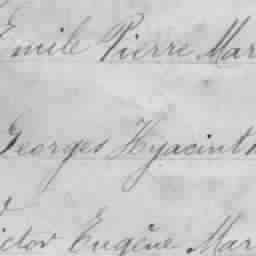 Emile Pierre Mar
Georges Hyacinth
ictor Eugène Mar